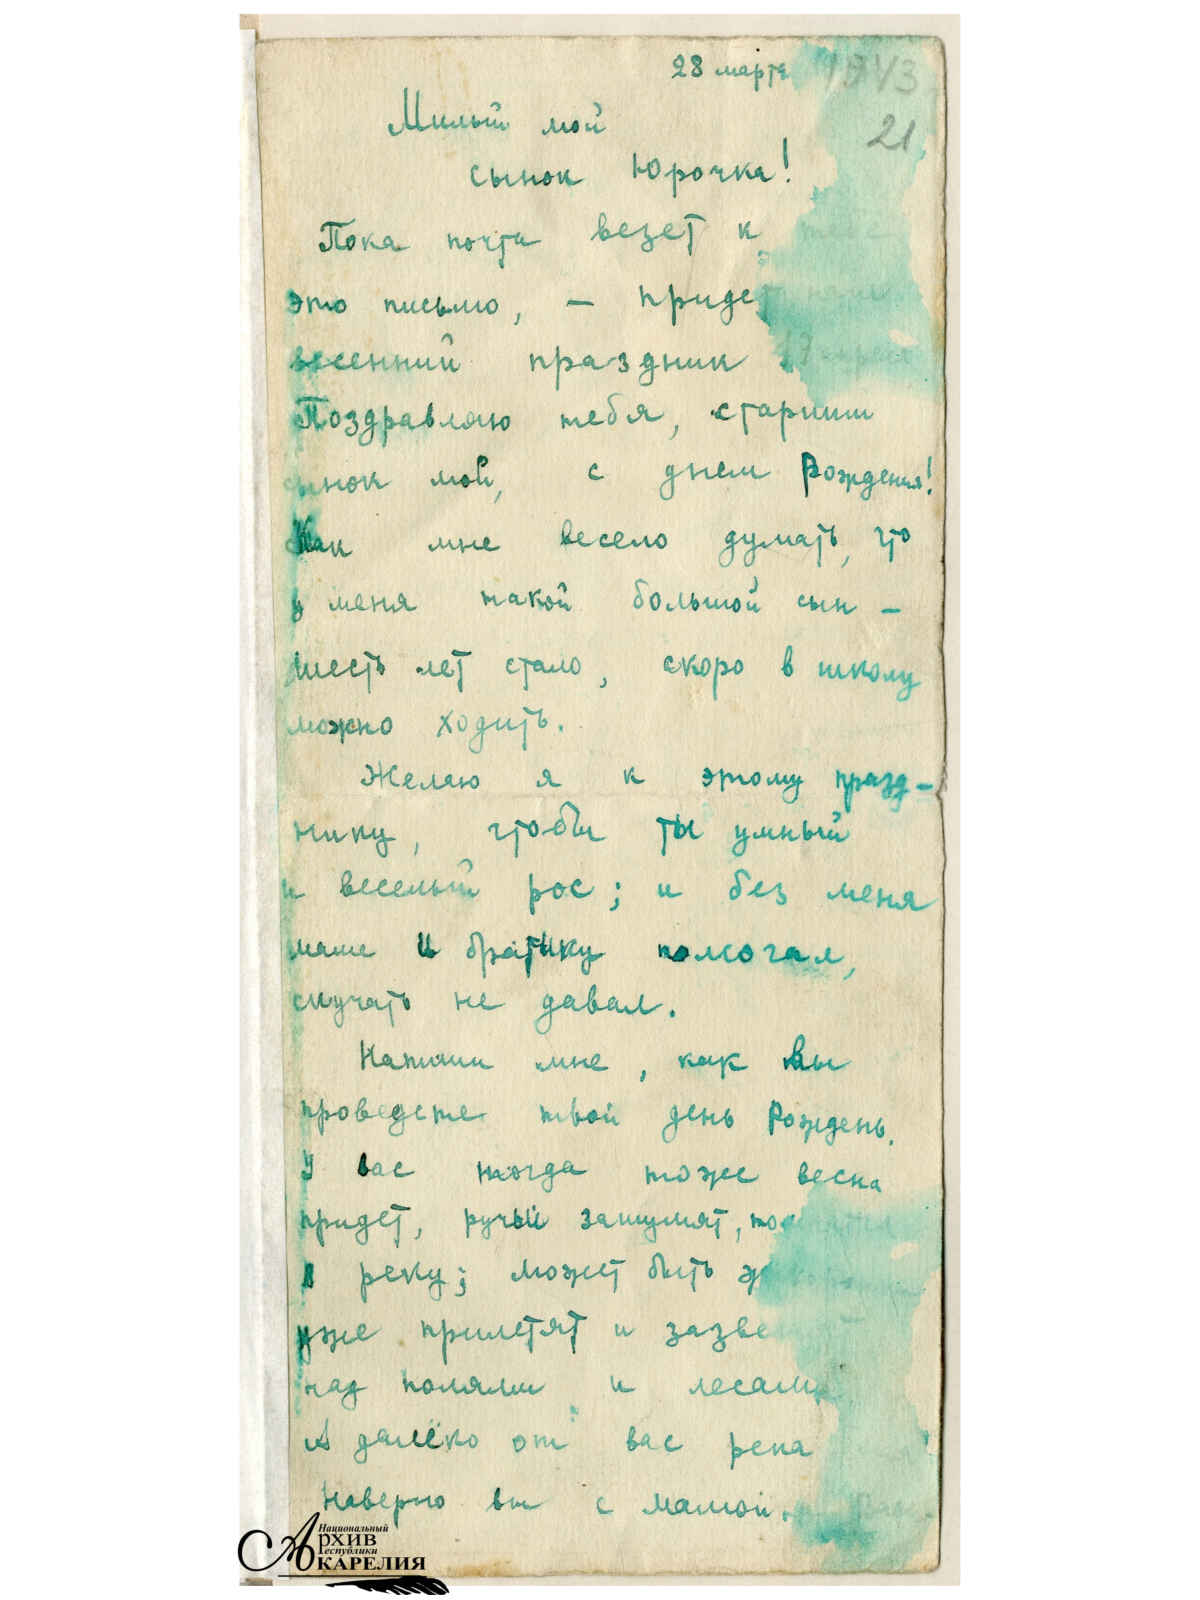 28 марта 1943
21
Милый мой
сынок Юрочка!
Пока почта везет к тебе
это письмо, — придет наш
весенний праздник 17
Поздравляю тебя, старший
сынок мой, с днем Рождения!
Как мне весело думать, что
у меня такой большой сын —
шесть лет стало, скоро в школу
можно ходить.
Желаю я к этому празд-
нику, чтобы ты умный
и веселый рос; и без меня
маме и братику помогал,
скучать не давал.
Напиши мне, как вы
проведете твой день Рождень.
У вас тогда тоже весна
придет, ручьи зашумят,
в реку; может быть
уже прилетят и
над полями и лесами
А далёко от вас река
Наверно вы с мамой
Национальный
Архив
Республики
Карелия